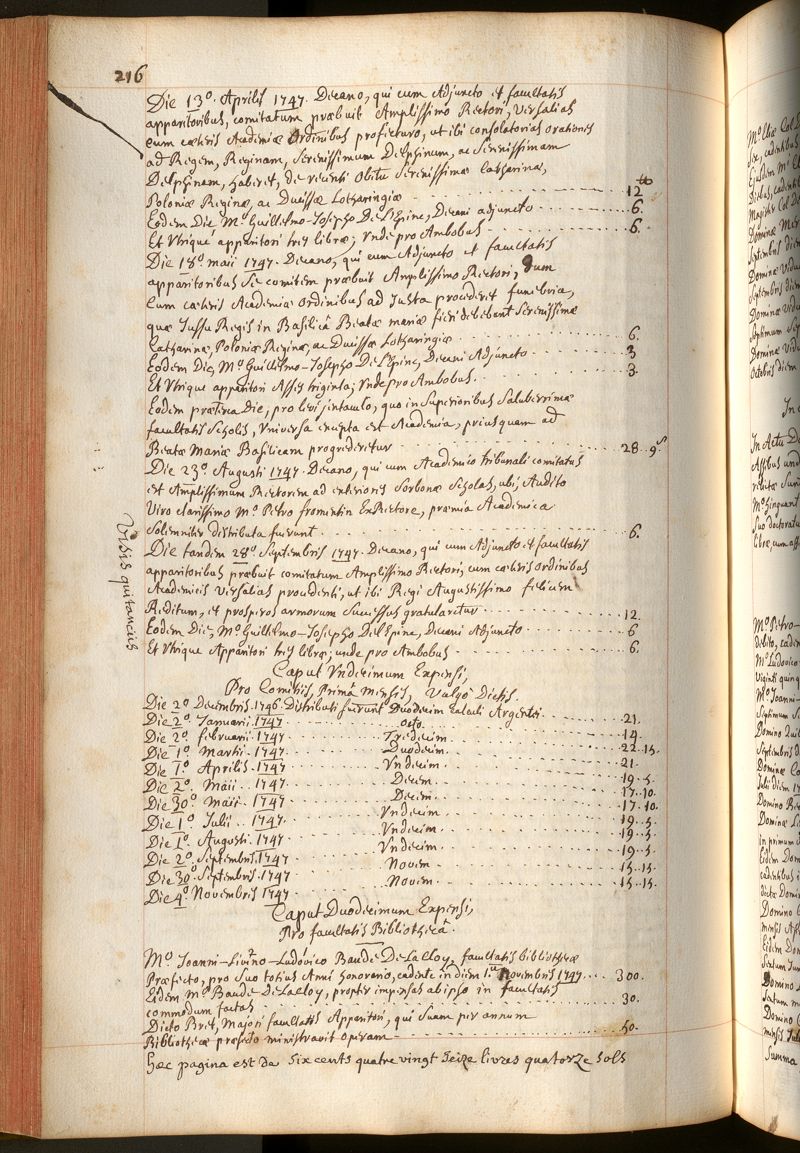 216
Die 13º. Aprilis 1747. Decano, qui cum Adjuncto et facultatis
apparitoribus, comitatum præbuit Amplissimo Rectori, Versalias
cum cæteris Academiæ Ordinibus profecturo, ut ibi consolatorias orationes
ad Regem, Reginam, Serenissimum Delphinum, ac Serenissimam
Delphinam, haberet, de recenti obitu Serenissimæ Catharinæ,
Poloniæ Reginæ, ac Ducissæ Lotharingiæ 12 tt
Eodem Die Mº. Guillelmo-Josepho De L'Epine, Decani adjuncto 6.
Et Utrique apparitori tres libræ; Unde pro Ambobus 6.
Die 18º. maii 1747. Decano, qui cum Adjuncto et facultatis
apparitoribus se comitem præbuit Amplissimo Rectori, dum
cum cæteris Academiæ ordinibus ad Justa procederet funebria,
quæ Jussu Regis in Basilicâ Beatæ mariæ fieri debebant Serenissimæ
Catharinæ, Poloniæ Reginæ, ac Ducissæ Lotharingiæ 6.
Eodem Die, Mº. Guillelmo-Josepho De L'Epine, Decani Adjuncto 3
Et Utrique apparitori Asses triginta; Unde pro Ambobus. 3.
Eodem præterea Die, pro levi jentaculo, quo in Superioribus Saluberrimæ
facultatis Scholis, Universa excepta est Academia, priusquam ad
Beatæ Mariæ Basilicam progrederetur 28..9s
Die 23º. Augusti 1747. Decano, qui cum Academico tribunali comitatus
est Amplissimum Rectorem ad exteriores Sorbonæ Scholas, ubi, Audito
Viro clarissimo Mº. Petro fromentin ExRectore, præmia Academica
Solemniter distributa fuerunt 6.
Die tandem 28º. Septembris 1747. Decano, qui cum Adjuncto et facultatis
apparitoribus præbuit comitatum Amplissimo Rectori, cum cæteris ordinibus
Academicis Versalias procedenti, ut ibi Regi Augustissimo felicem
Reditum, et prosperos armorum Successus gratularetur 12.
Eodem Die, Mº. Guillelmo-Josepho De l'Epine, Decani Adjuncto 6
Et Utrique Apparitori tres libræ; unde pro Ambobus 6.
Visis quitanciis
Caput Undecimum Expensi,
Pro Comitiis, Primâ mensis, Vulgò Dictis.
Die 2º. Decembris 1746. Distributi fuerunt Duodecim calculi Argentei 21.
Die 2º. Januarii 1747. octo. 14.
Die 2º. februarii 1747. Tredecim. 22..15.
Die 1º. Martii. 1747. Duodecim. 21.
Die 1º. Aprilis. 1747. Undecim. 19..5.
Die 2º. Maii. 1747. Decem. 17..10.
Die 30º. Maii. 1747. Decem. 17..10.
Die 1º. Julii. 1747. Undecim. 19..5.
Die 1º. Augusti. 1747. Undecim. 19..5.
Die 2º. Septembris. 1747 Undecim. 19..5.
Die 30º. Septembris. 1747 Novem. 15..15.
Die 4º. Novembris 1747 Novem. 15..15.
Caput Duodecimum Expensi,
Pro facultatis Bibliothecâ.
Mº. Joanni-Livino-Ludovico Baude De La Cloy, facultatis bibliothecæ
Præfecto, pro Suo totius Anni honorario, cadente in diem 1am Novembris 1747 300.
Eidem Mº. Baude De La Cloy, propter impensas ab ipso in facultatis
commodum factas 30.
Dicto Bret, Majori facultatis Apparitori, qui Suam per annum
Bibliothecæ præfecto ministravit operam 50.
Hæc pagina est da Six cents quatre vingt Seize livres quatorze Sols